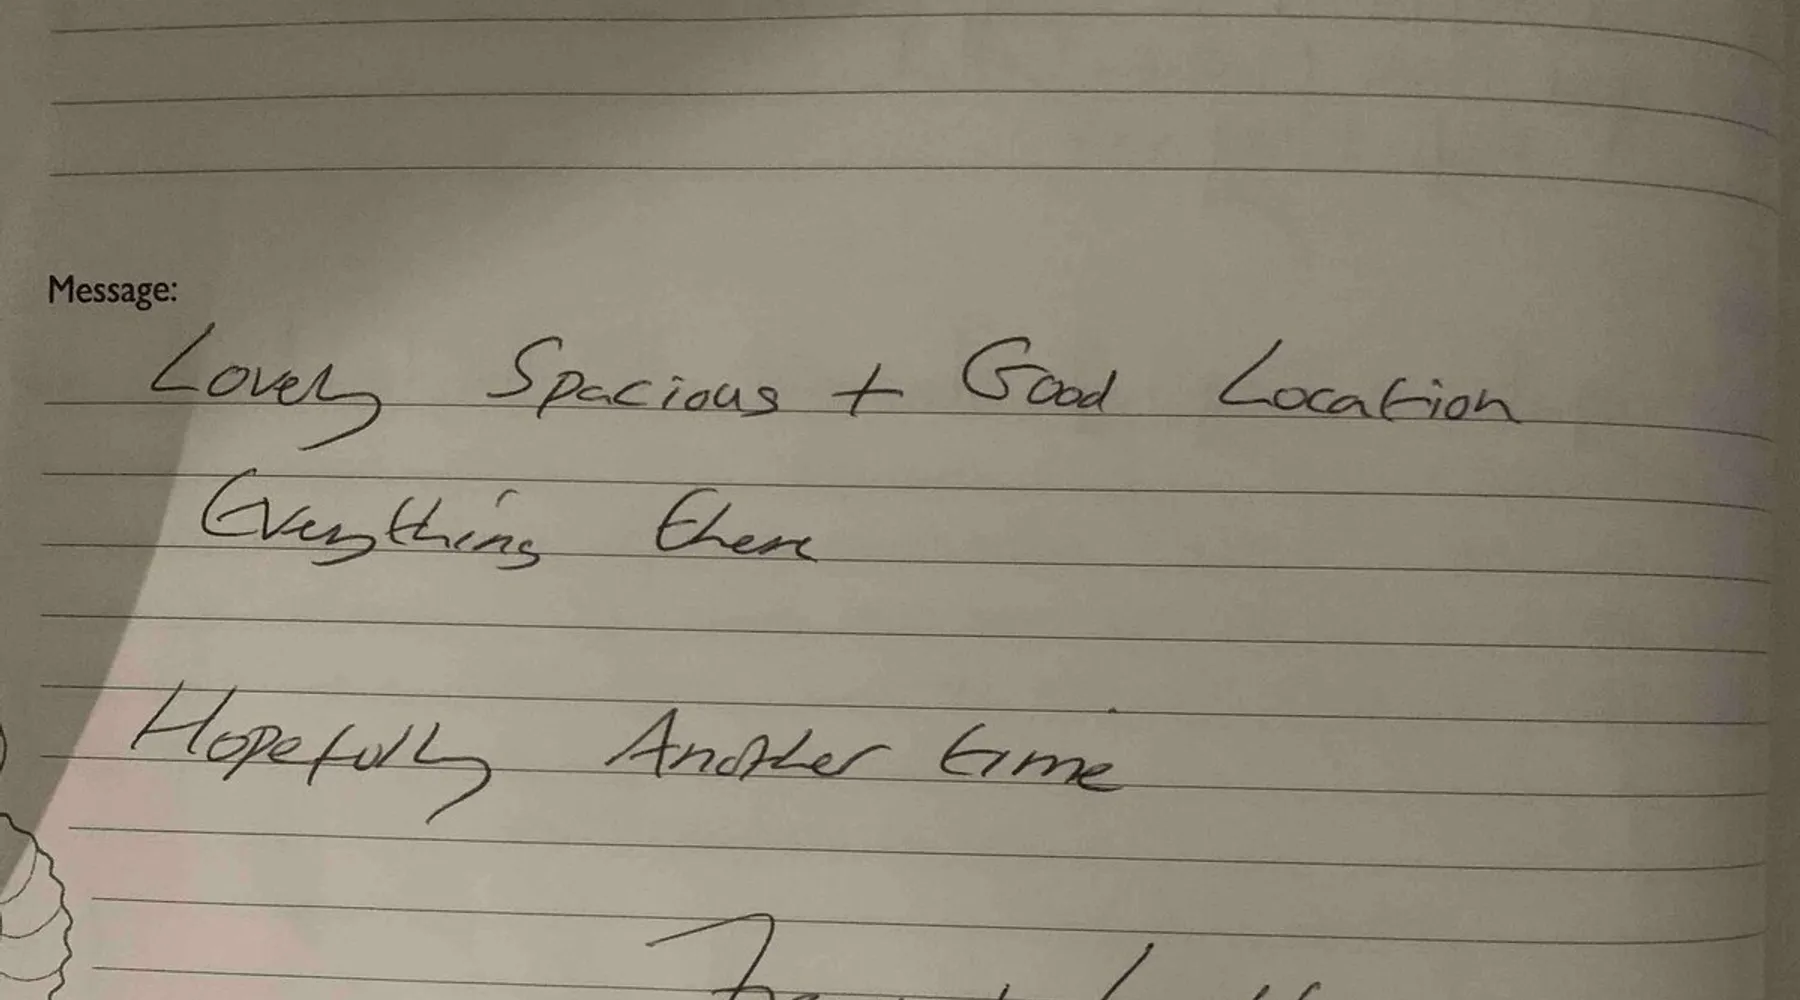 Message:
Lovely Spacious + Good Location
Everything there
Hopefully Another time